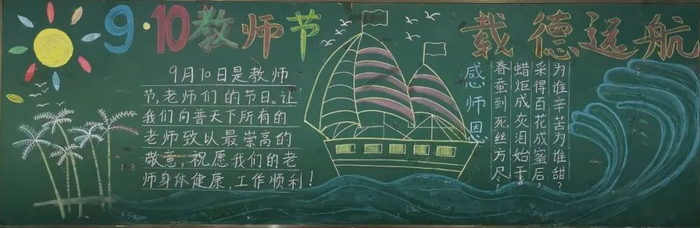 9·10教师节
载德远航
9月10日是教师
节,老师们的节日。让
我们向普天下所有的
老师致以最崇高的
敬意,祝愿我们的老
师身体健康,工作顺利!
感师恩
春蚕到死丝方尽,
蜡炬成灰泪始干。
采得百花成蜜后,
为谁辛苦为谁甜?